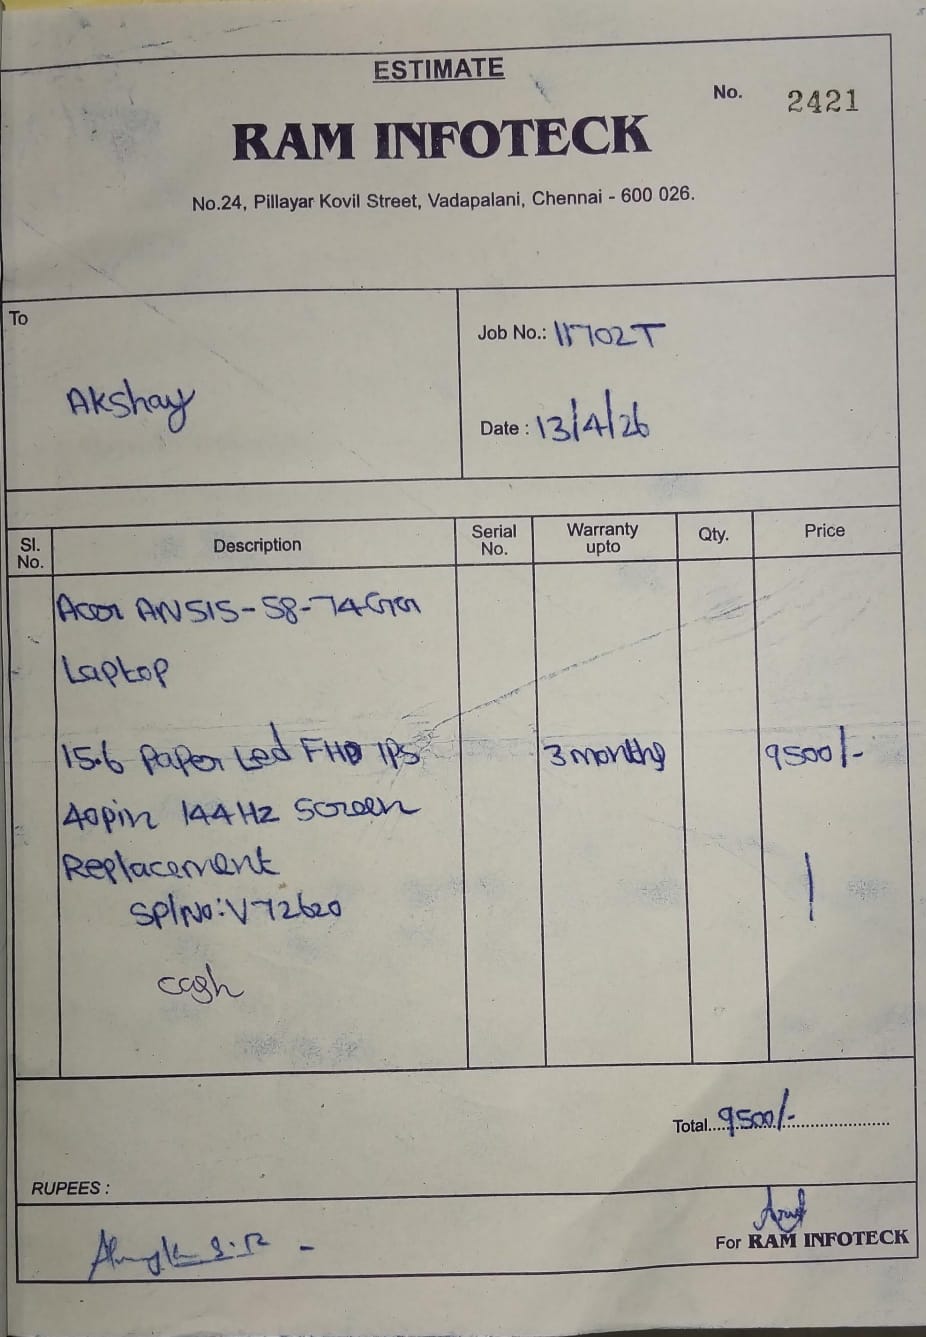 ESTIMATE
No. 2421
RAM INFOTECK
No.24, Pillayar Kovil Street, Vadapalani, Chennai - 600 026.
To
Akshay
Job No.: 11702T
Date : 13/4/26
Sl. No. Description Serial No. Warranty upto Qty. Price
Acer AN515-58-74GG
Laptop
15.6 Paper Led FHD IPS 3 months 9500/-
40pin 144Hz Screen
Replacement
Spl No: V72620
cash
Total 9500/-
RUPEES :
For RAM INFOTECK